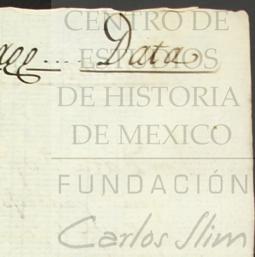 CENTRO DE
ESTUDIOS
Data
DE HISTORIA
DE MEXICO
FUNDACIÓN
Carlos Slim